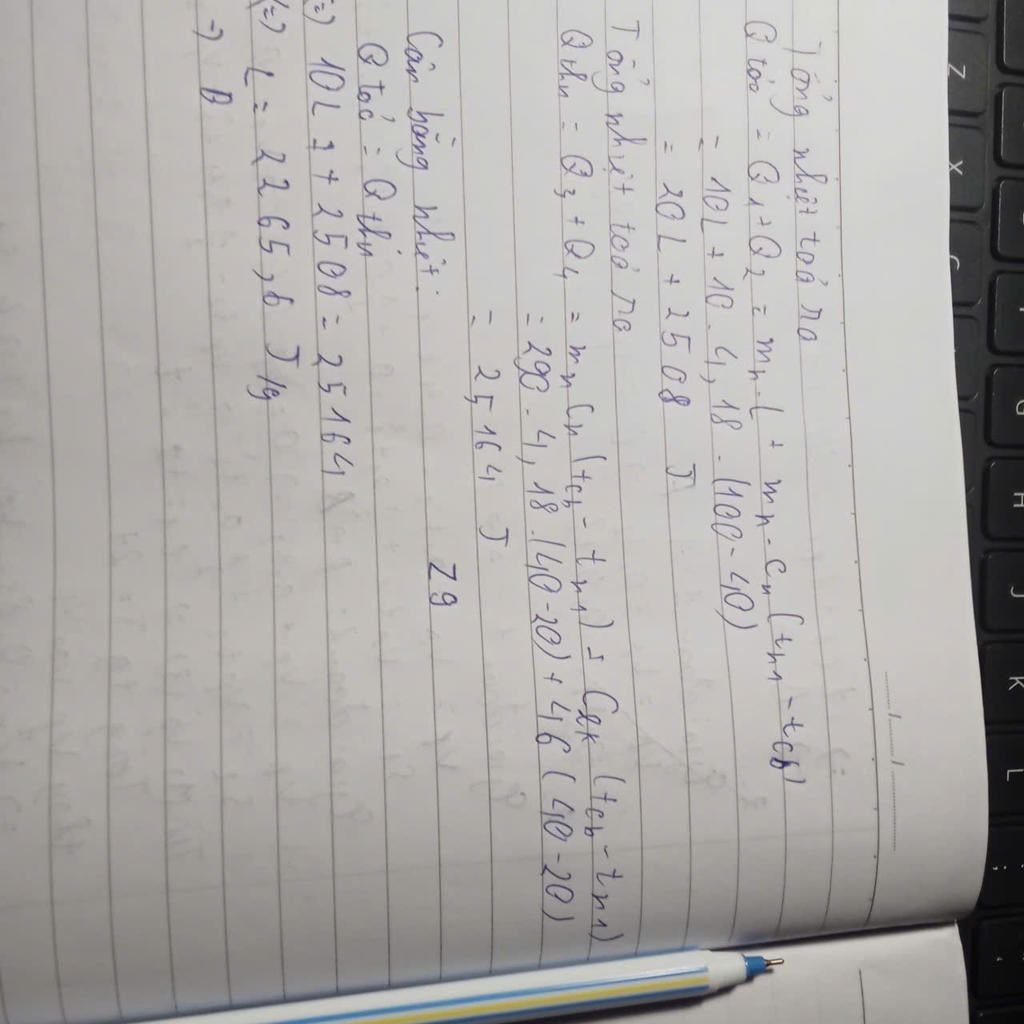 Tổng nhiệt toả ra
Q toả = Q1 + Q2 = mn.L + mn.Cn (tn1 - tcb)
= 10L + 10. 4,18. (100 - 40)
= 20L + 2508 J
Tổng nhiệt toả ra
Q thu = Q3 + Q4 = mn Cn (tcb - tn1) = Clk (tcb - tn1)
= 290. 4,18. (40-20) + 46 (40-20)
= 25164 J
Z9
Cân bằng nhiệt.
Q toả = Q thu
(=) 10L + 2508 = 25164
(=) L = 2265,6 J/g
=) B
Z
X
C
H
J
K
L
;